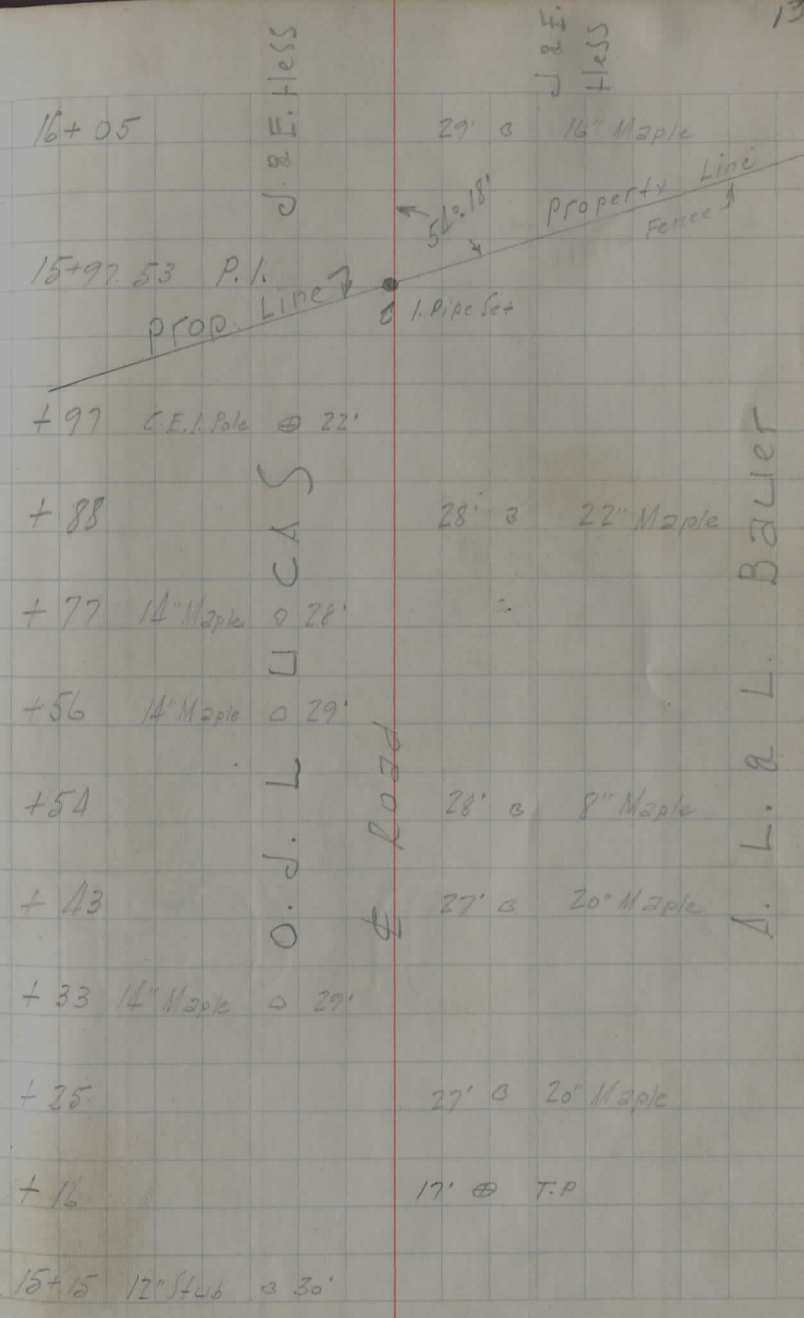 13
J. & E. Hess
J & E. Hess
16+05 29' 16" Maple
54°.18'
Property Line
Fence
15+97.53 P.I.
Prop. Line
I. Pipe Set
+97 C.E.I. Pole ⊕ 22'
+88 28' 22" Maple
+77 14" Maple o 28'
+56 14" Maple o 29'
+54 28' 8" Maple
+43 27' 20" Maple
+33 14" Maple o 29'
+25 27' 20" Maple
+16 17' ⊕ T.P
15+15 12" Stub 30'
O. J. LUCAS
℄ Road
A. L. & L. Bauer